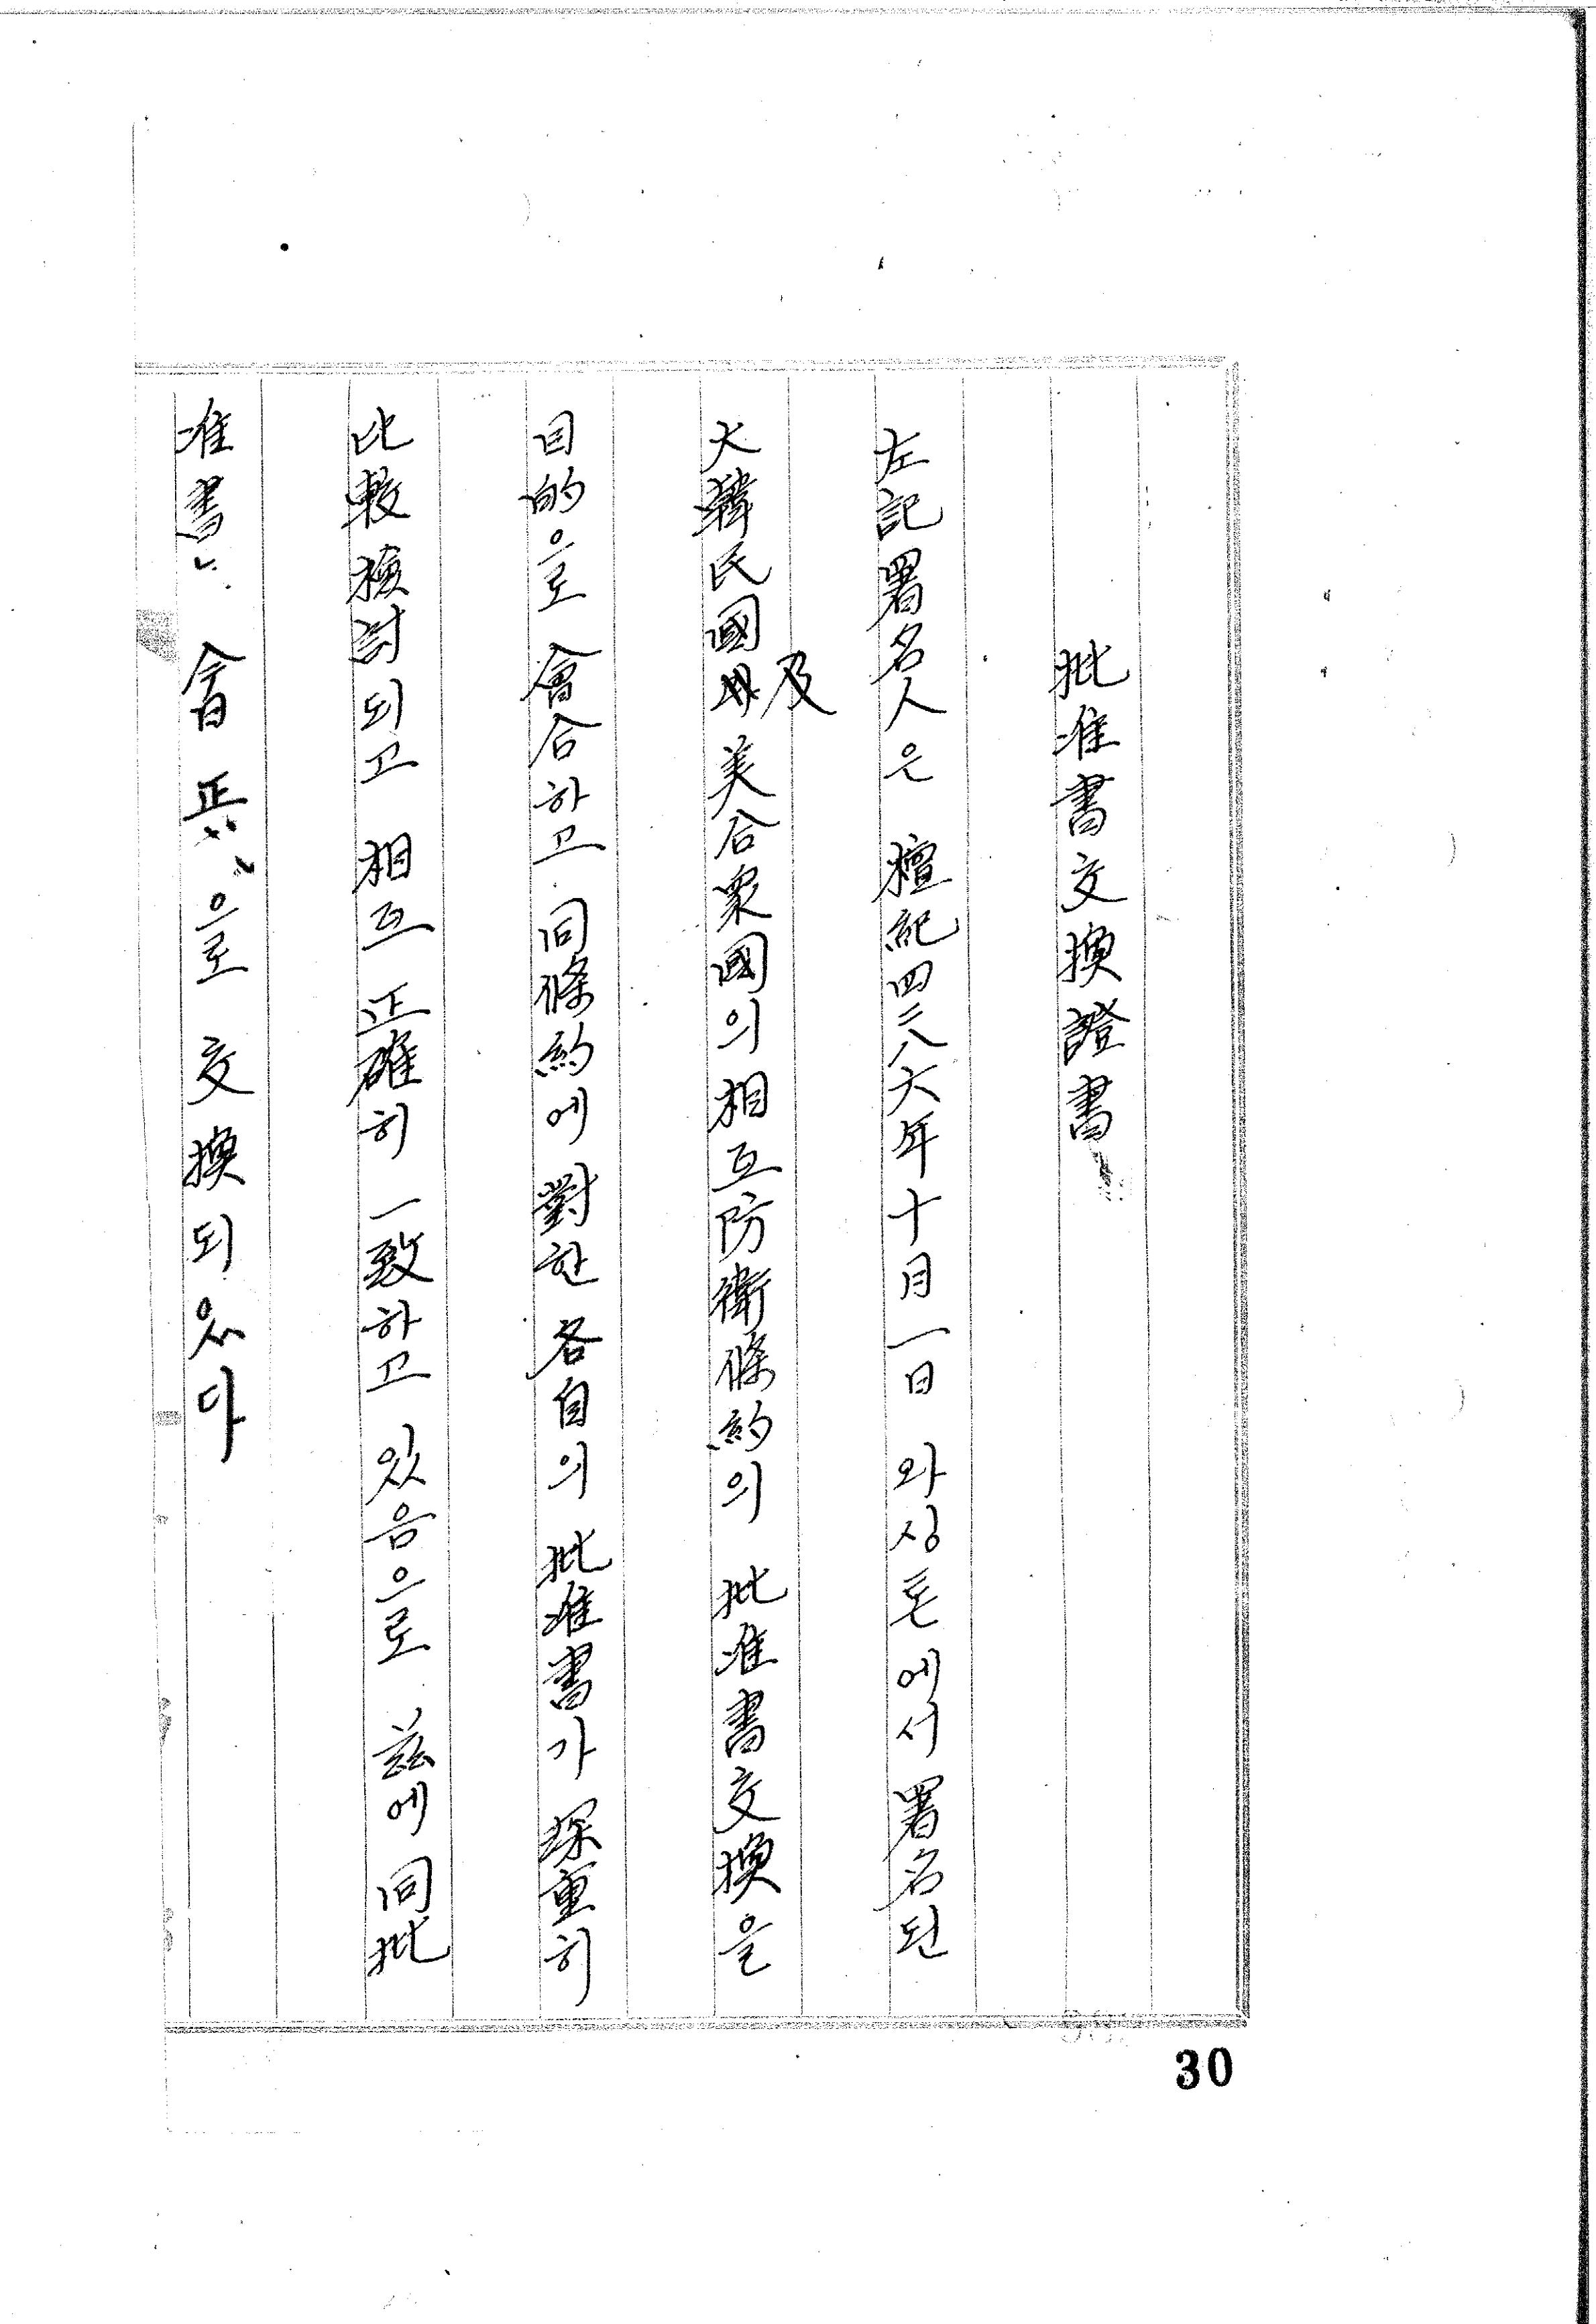 批准書交換證書
左記署名人은 檀紀四二八六年十月一日 와싱톤에서 署名된
大韓民國及美合衆國의 相互防衛條約의 批准書交換을
目的으로 會合하고 同條約에 對한 各自의 批准書가 深重히
比較檢討되고 相互 正確히 一致하고 있음으로 玆에 同批
准書 으로 交換되있다
30